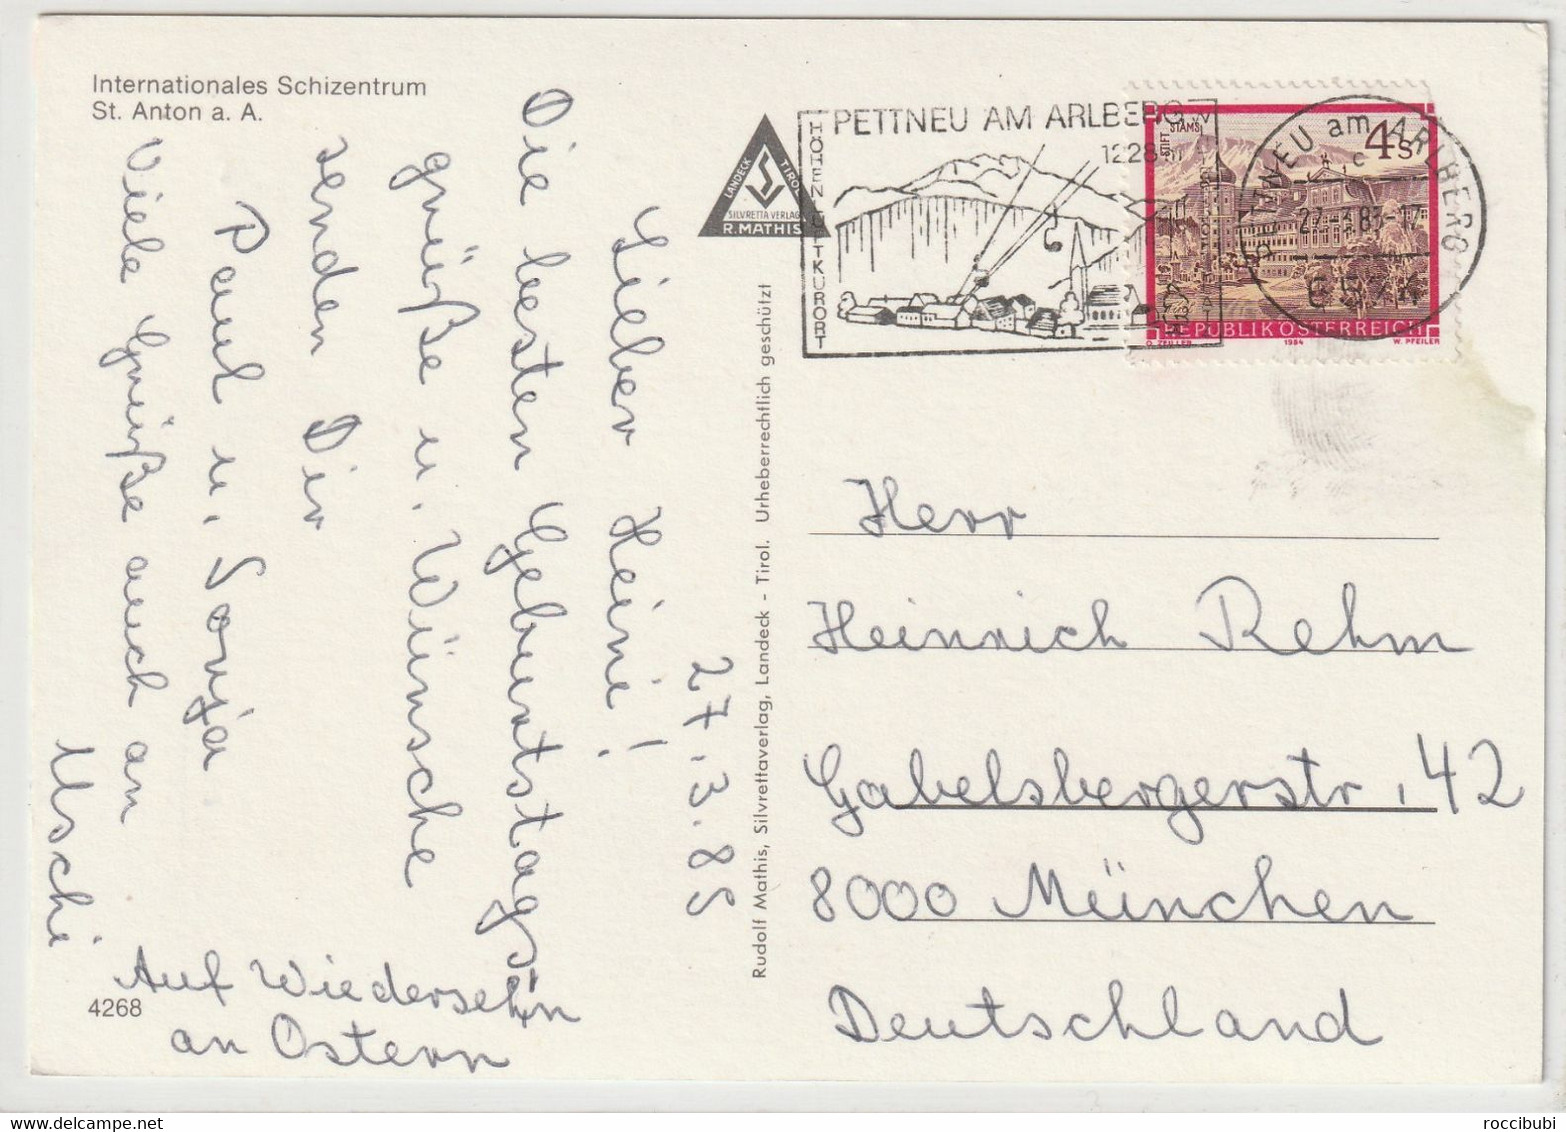 Internationales Schizentrum
St. Anton a. A.
27.3.85
Lieber Heini!
Die besten Geburtstags-
grüße u. Wünsche
senden Dir
Paul u. Sonja
Viele Grüße auch an
Uschi
Auf Wiedersehn
an Ostern
4268
LANDECK TIROL
SILVRETTA VERLAG
R. MATHIS
Rudolf Mathis, Silvrettaverlag, Landeck - Tirol. Urheberrechtlich geschützt
PETTNEU AM ARLBERG
HÖHENLUFTKURORT
1228 m
PETTNEU am ARLBERG
6574
STIFT STAMS
4 S
REPUBLIK ÖSTERREICH
O. ZEILLER 1984 W. PFEILER
Herr
Heinrich Rehm
Gabelsbergerstr. 42
8000 München
Deutschland
roccibubi